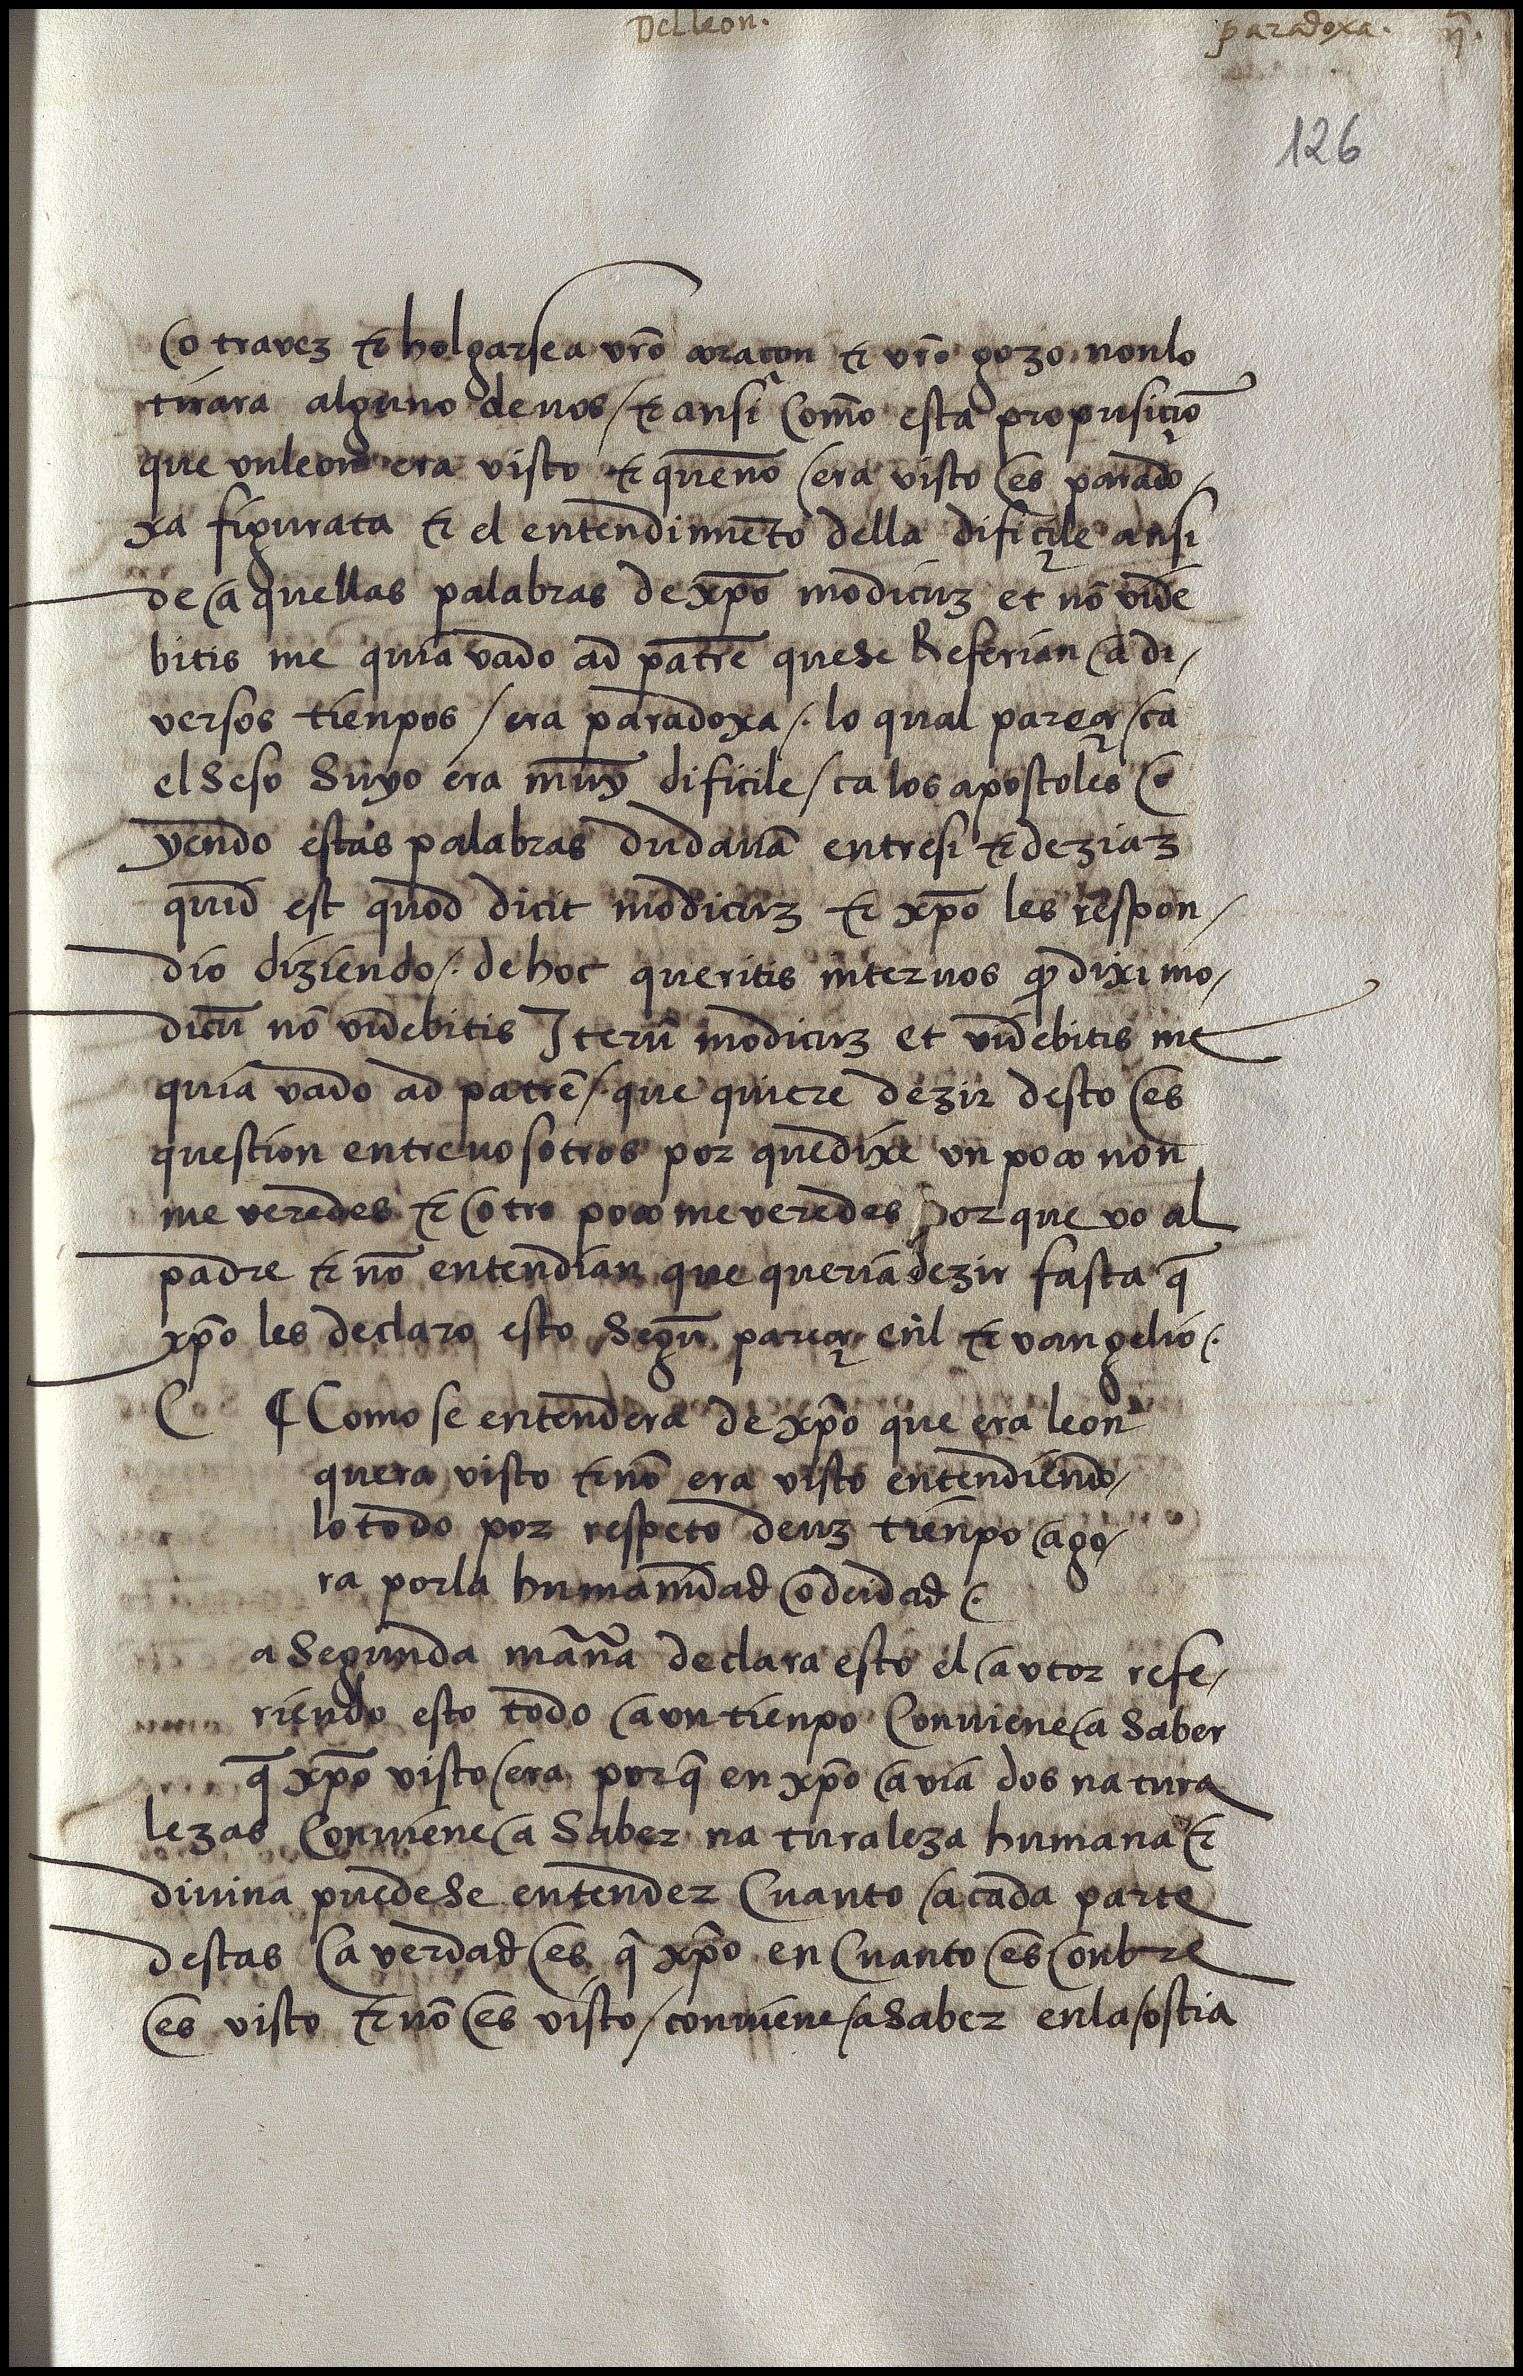 Del leon. paradoxa. ij.
126
otra vez & holgarsea vr̃o coraçon & vr̃o gozo non lo
tirara alguno de uos / & ansi Com̃o esta propusiciõ
que vn leon era visto & queno era visto es parado /
xa figurata & el entendimiẽto della difiçile ansi
de aquellas palabras de xp̃o modicuz et nõ vide
bitis me quia vado ad patrẽ que se Referian a di /
versos tienpos / era paradoxa /. lo qual pareçe / ca
el seso suyo era muy dificile / ca los apostoles o
yendo estas palabras dudauã entresi & deziaz
quid est quod dicit modicuz & xp̃o les respon /
dio diziendo /. de hoc queritis inter uos q̃ dixi mo /
dicũ nõ videbitis Iterũ modicuz et videbitis me
quia vado ad patrẽ /. que quiere dezir desto es
question entre uosotros por que dixe vn poco non
me veredes & otro poco me veredes por que vo al
padre & nõ entendian que queria dezir fasta q̃
xp̃o les declaro esto segũ pareçe enl & vangelio /.
¶ Como se entendera de xp̃o que era leon
quera visto & nõ era visto entendiendo /
lo todo por respeto deuz tienpo ago /
ra por la humanidad o deidad /.
a segunda manã declara esto el autor refe /
riendo esto todo a vn tienpo Conuiene a saber
q̃ xp̃o visto era por q̃ en xp̃o auia dos natura
lezas Conuiene a saber naturaleza humana &
diuina puedese entender Cuanto a cada parte
destas Ca verdad es q̃ xp̃o en Cuanto es onbre
es visto & nõ es visto / conuiene / a saber en la / ostia